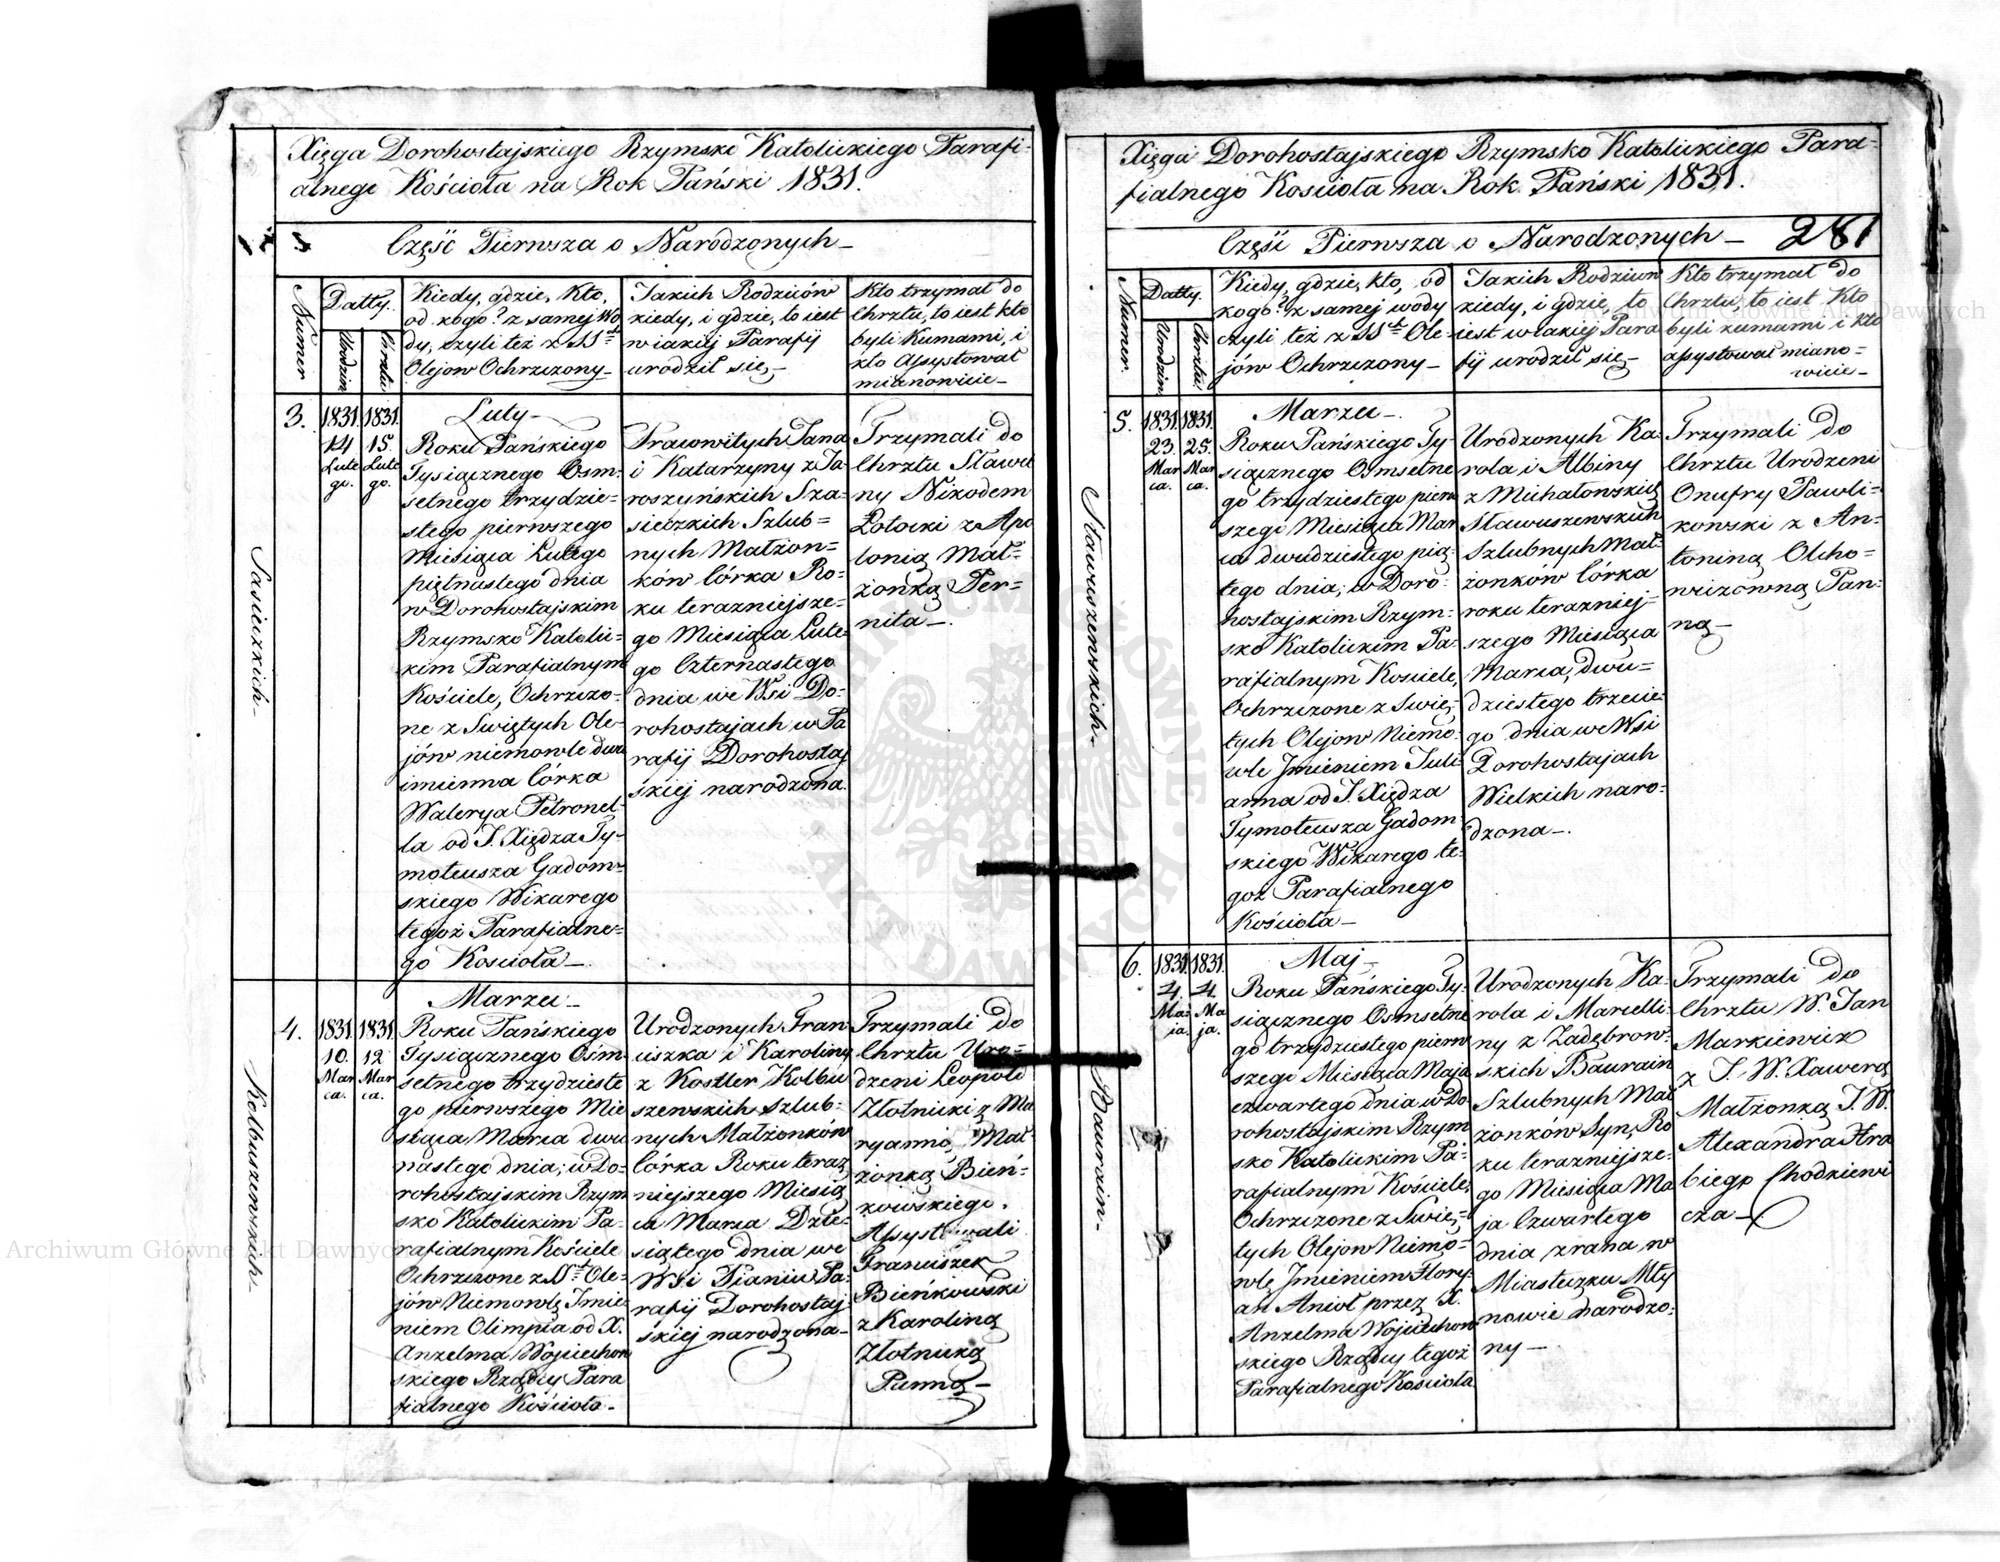 Xięga Dorohostajskiego Rzymsko Katolickiego Parafi-
alnego Kościoła na Rok Pański 1831.
Część Pierwsza o Narodzonych
Numer
Datty.
Urodzin
Chrztu
Kiedy, gdzie, Kto,
od kogo? z samej Wo
dy, czyli też z SS.
Olejow Ochrzczony
Jakich Rodziców
kiedy, i gdzie, to iest
w iakiej Parafij
urodził się,
Kto trzymał do
Chrztu, to iest kto
byli Kumami, i
kto Asystował
mianowicie
Sasieczkich
3.
1831.
14
Lute
go.
1831.
15.
Lute
go.
Luty
Roku Pańskiego
Tysiącznego Osm-
setnego trzydzie-
stego pierwszego
Miesiąca Lutego
piętnastego dnia
w Dorohostajskim
Rzymsko Katolic-
kim Parafialnym
Kościele, Ochrzczo-
ne z Swiętych Ole-
jów niemowle dwu
imienna Córka
Walerya Petronel-
la od J. Xiędza Ty-
moteusza Gadom-
skiego Wikarego
tegoż Parafialne-
go Koscioła
Pracowitych Jana
i Katarzyny z Ja-
roszyńskich Sza-
sieczkich Szlub-
nych Małżon-
ków Córka Ro-
ku terazniejsze-
go Miesiąca Lute-
go Czternastego
dnia we Wsi Do-
rohostajach w Pa
rafij Dorohostaj
skiej narodzona.
Trzymali do
Chrztu Sławe
ny Nikodem
Potocki z Apo
lonią Mał-
żonką Per-
nita
Kolbuszewskich
4.
1831.
10.
Mar
ca.
1831.
12
Mar
ca.
Marzec
Roku Pańskiego
Tysiącznego Ośm
setnego trzydzieste
go pierwszego Mie
siąca Marca dwu
nastego dnia; w Do-
rohostajskim Rzym
sko Katolickim Pa-
rafialnym Kościele
Ochrzczone z SS. Ole-
jów Niemowlę Imie-
niem Olimpia od X.
Anzelma Wojciechow
skiego Rządcy Para
fialnego Kościoła.
Urodzonych Fran
ciszka i Karoliny
z Kostler Kolbu
szewskich szlub-
nych Małżonków
Córka Roku teraz
niejszego Miesią
ca Marca Dzie-
siątego dnia we
Wsi Pianiu Pa-
rafij Dorohostaj
skiej narodzona
Trzymali do
Chrztu Uro-
dzeni Leopold
Złotnicki z Ma
ryanną Mał-
żonką Bień-
kowskiego.
Asystowali
Franciszek
Bieńkowski
z Karoliną
Złotnicką
Panną
Xięga Dorohostajskiego Rzymsko Katolickiego Para-
fialnego Kosciola na Rok Pański 1831.
Część Pierwsza o Narodzonych 281
Numer
Datty.
Urodzin
Chrztu
Kiedy, gdzie, kto, od
kogo? z samej wody
czyli też z SS. Ole-
jów Ochrzczony
Jakich Rodziców
kiedy, i gdzie, to
iest w iakiej Para
fij urodził się,
Kto trzymał do
Chrztu, to iest Kto
byli kumami i kto
asystował miano-
wicie
Stawuszewskich
5.
1831.
23.
Mar
ca.
1831.
25.
Mar
ca.
Marzec
Roku Pańskiego Ty-
siącznego Osmsetne
go trzydziestego pierw
szego Miesiąca Mar
ca dwudziestego pią-
tego dnia, w Doro-
hostajskim Rzym-
sko Katolickim Pa-
rafialnym Kosciele,
Ochrzczone z Swię-
tych Olejow Niemo-
wle Jmieniem Juli-
anna od J. Xiędza
Tymoteusza Gadom
skiego Wikarego te-
goż Parafialnego
Kościoła
Urodzonych Ka-
rola i Albiny
z Michałowskich
Stawuszewskich
Szlubnych Mał-
żonków Córka
roku terazniej-
szego Miesiąca
Marca, dwu-
dziestego trzecie-
go dnia we Wsi
Dorohostajach
Wielkich naro-
dzona
Trzymali do
Chrztu Urodzeni
Onufry Pawli-
kowski z An-
toniną Olcho-
wiczówną Pan-
ną
Baurain
6.
1831.
4.
Ma-
ja.
1831.
4.
Ma
ja.
Maj
Roku Pańskiego Ty-
siącznego Osmsetne
go trzydziestego pierw
szego Miesiąca Maja
czwartego dnia w Do
rohostajskim Rzym
sko Katolickim Pa-
rafialnym Kościele,
Ochrzczone z Swię-
tych Olejow Niemo-
wlę Jmieniem Flory-
an Anioł przez X.
Anzelma Wojciechow
skiego Rządcy tegoż
Parafialnego Kosciola
Urodzonych Ka-
rola i Marcelli-
ny z Zadębrow-
skich Baurain
Szlubnych Mał
żonków Syn, Ro
ku terazniejsze-
go Miesiąca Ma
ja Czwartego
dnia zrana w
Miasteczku Mły
nowie narodzo-
ny
Trzymali do
Chrztu W. Jan
Markiewicz
z J. W. Xawerą
Małżonką J. W.
Alexandra Hra
biego Chodkiewi
cza
Archiwum Główne Akt Dawnych
Archiwum Główne Akt Dawnych
ARCHIWUM GŁÓWNE AKT DAWNYCH